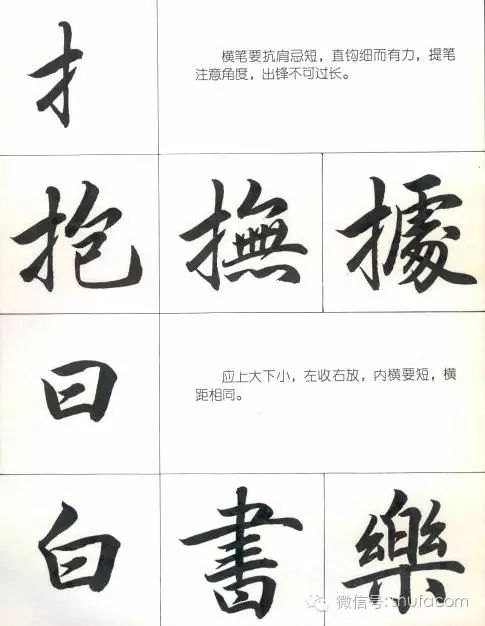 扌
横笔要抗肩忌短，直钩细而有力，提笔
注意角度，出锋不可过长。
抱 撫 據
曰
应上大下小，左收右放，内横要短，横
距相同。
白 書 樂
微信号: shufacom